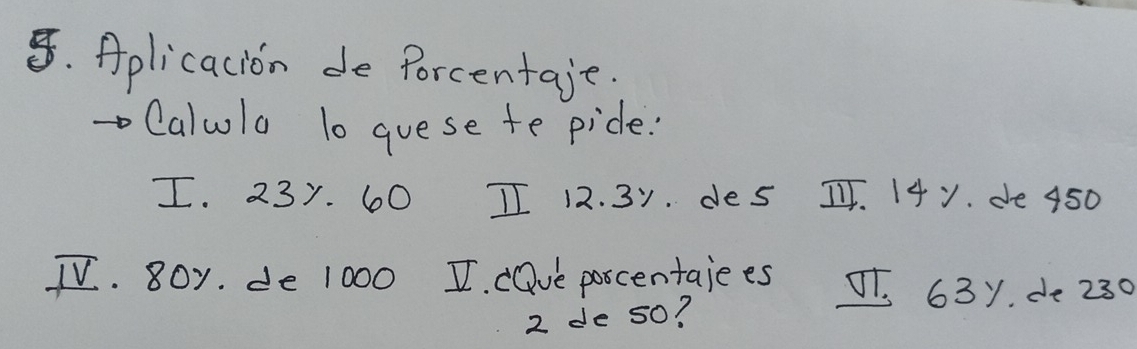 5. Aplicación de Porcentaje.
→ Calcula lo que se te pide:
I. 23%. 60 II 12.3%. de 5 III. 14%. de 450
IV. 80%. de 1000 V. ¿Qué porcentaje es
2 de 50? VI. 63%. de 230